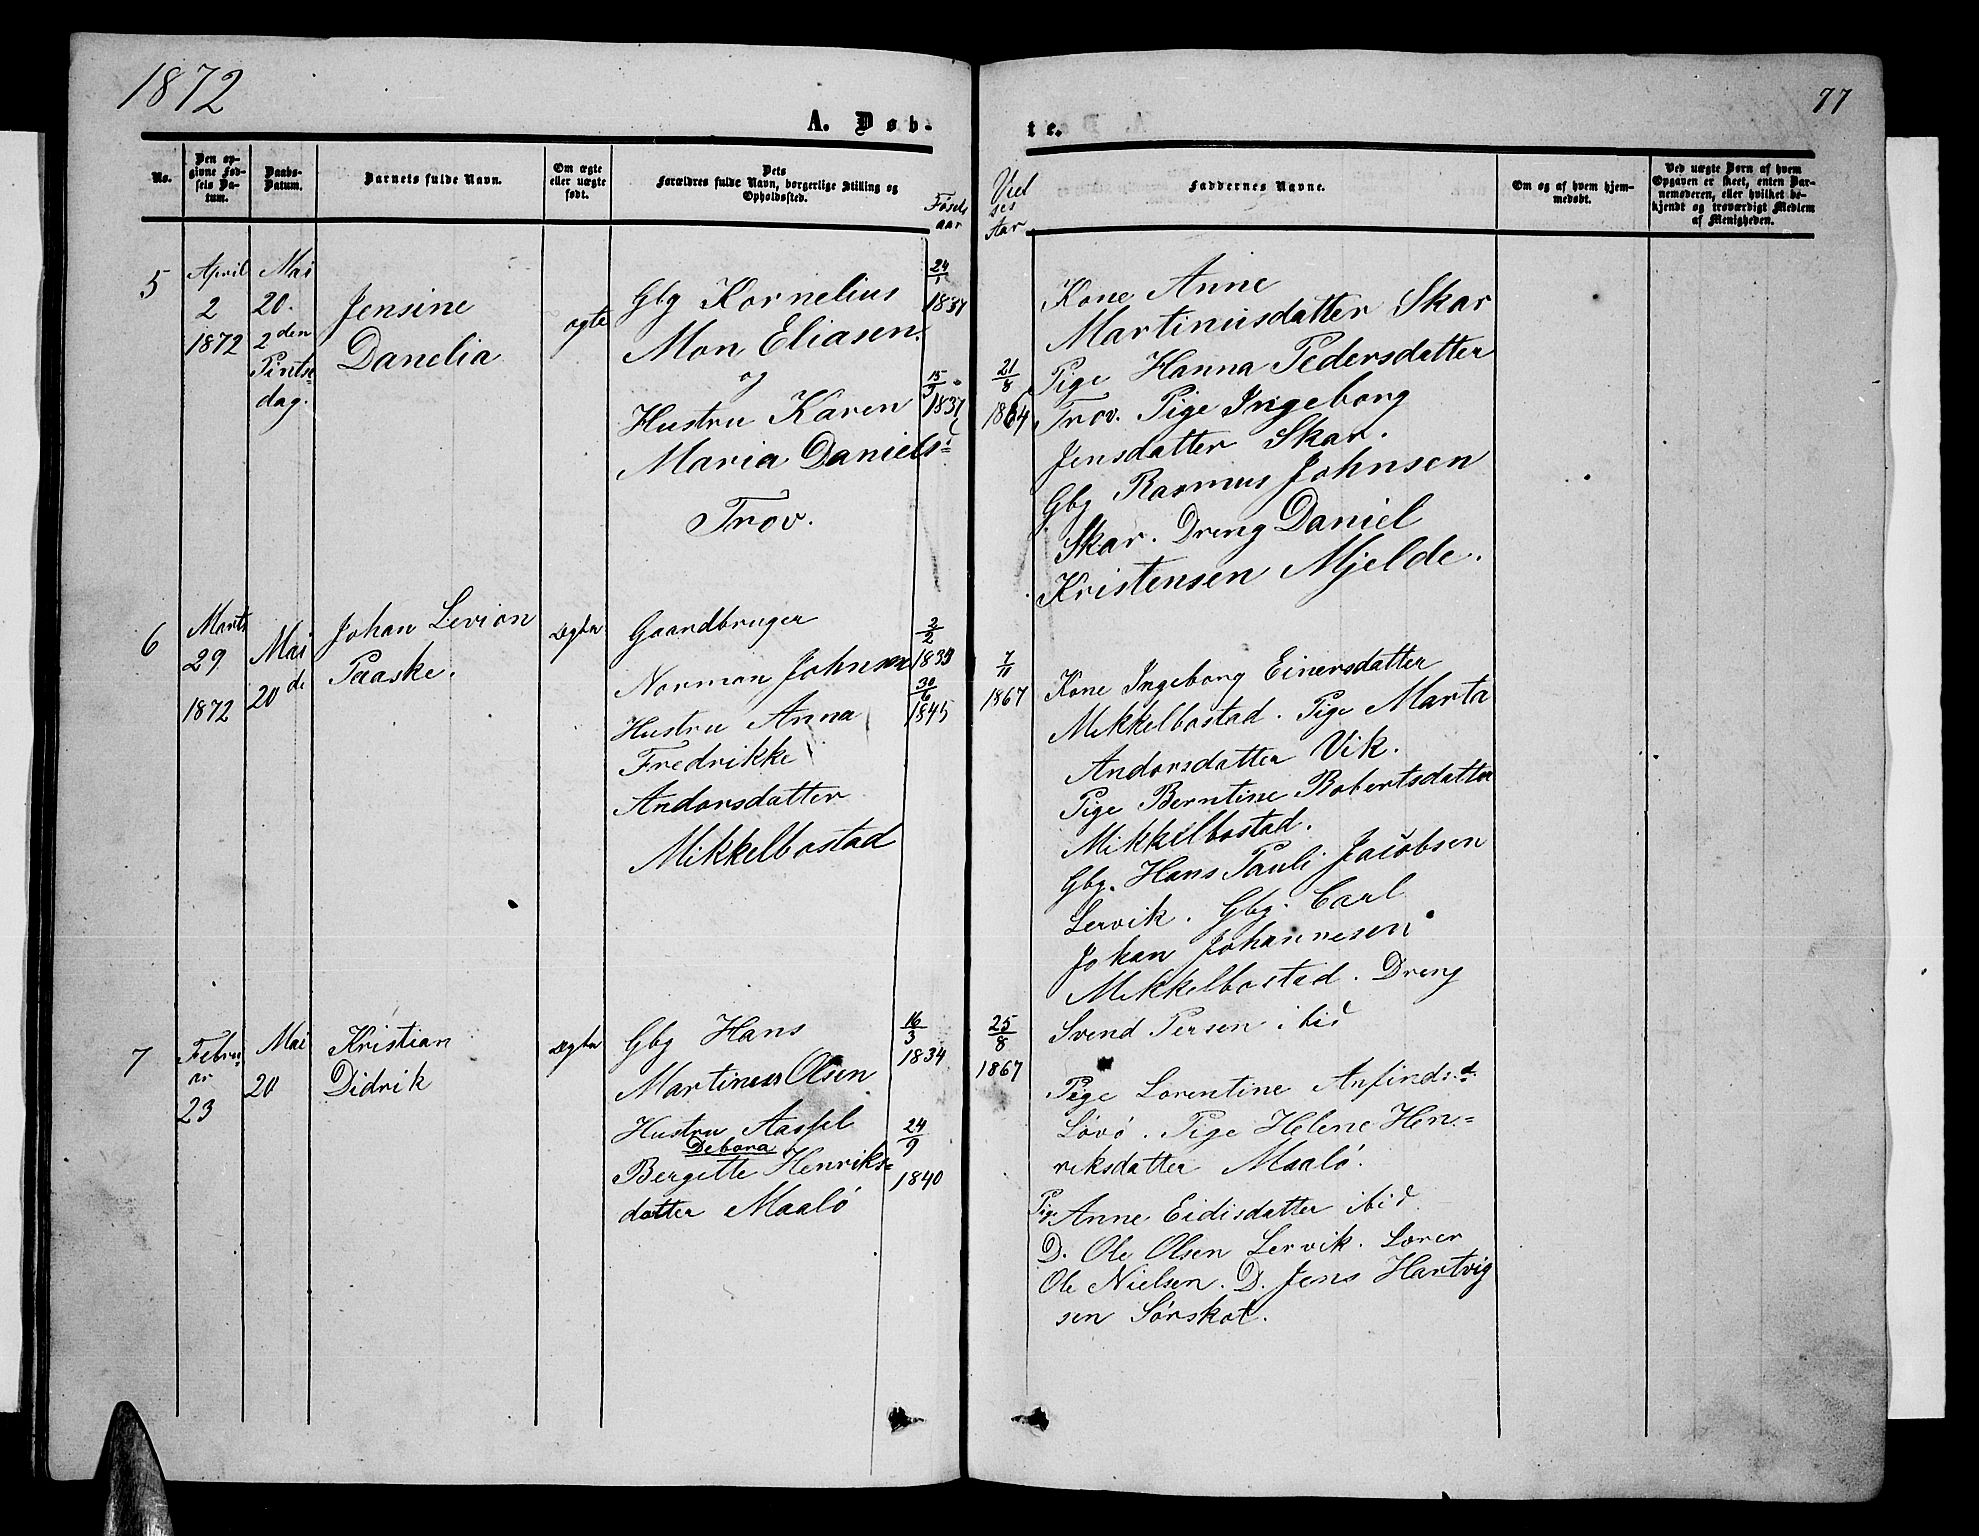 1872
77
A. Døb-
te.
No.
Den op-
givne Fød-
sels Da-
tum.
Daabs-
Datum.
Barnets fulde Navn.
Om ægte
eller uægte
født.
Dets
Forældres fulde Navn, borgerlige Stilling og
Opholdssted.
Fösels
aar
Viel
ses
Aar
Faddernes Navne.
Om og af hvem hjem-
medøbt.
Ved uægte Børn af hvem
Opgaven er skeet, enten Bar-
nemoderen, eller hvilket be-
kjendt og troværdigt Medlem
af Menigheden.
5
April
2
1872
Mai
20.
2den
Pintse-
dag.
Jensine
Danelia
ægte
Gbg Kornelius
Mon Eliasen.
og
Hustru Karen
Maria Daniels=
Trov.
24/1
1837
15/9
1837
21/8
1864
Kone Anne
Martinusdatter Skar
Pige Hanna Pedersdatter
Trov. Pige Ingeborg
Jensdatter Skar.
Gbg Rasmus Johnsen
Skar. Dreng Daniel
Kristensen Mjelde.
6
Marts
29
1872
Mai
20de
Johan Levion
Paaske.
ægte
Gaardbruger
Norman Johnsen
Hustru Anna
Fredrikke
Andorsdatter
Mikkelbostad
2/2
1839
30/6
1845
7/11
1867
Kone Ingeborg Einersdatter
Mikkelbostad. Pige Marta
Andorsdatter Vik.
Pige Berntine Robertsdatter
Mikkelbostad.
Gbg. Hans Pauli Jacobsen
Lervik. Gbg. Carl
Johan Johannesen
Mikkelbostad. Dreng
Svend Persen ibid
7
Febru-
ar
23
Mai
20
Kristian
Didrik
ægte
Gbg Hans
Martinus Olsen
Hustru Aassel
Debora
Bergitte Henriks=
datter Maalö
16/3
1834
24/9
1840
25/8
1867
Pige Lorentine Anfindsd.
Lövö. Pige Helene Hen-
riksdatter Maalö.
Pige Anne Eidisdatter ibid
D. Ole Olsen Lervik. Lærer
Ole Nielsen. D. Jens Hartvig
sen Sörskot.